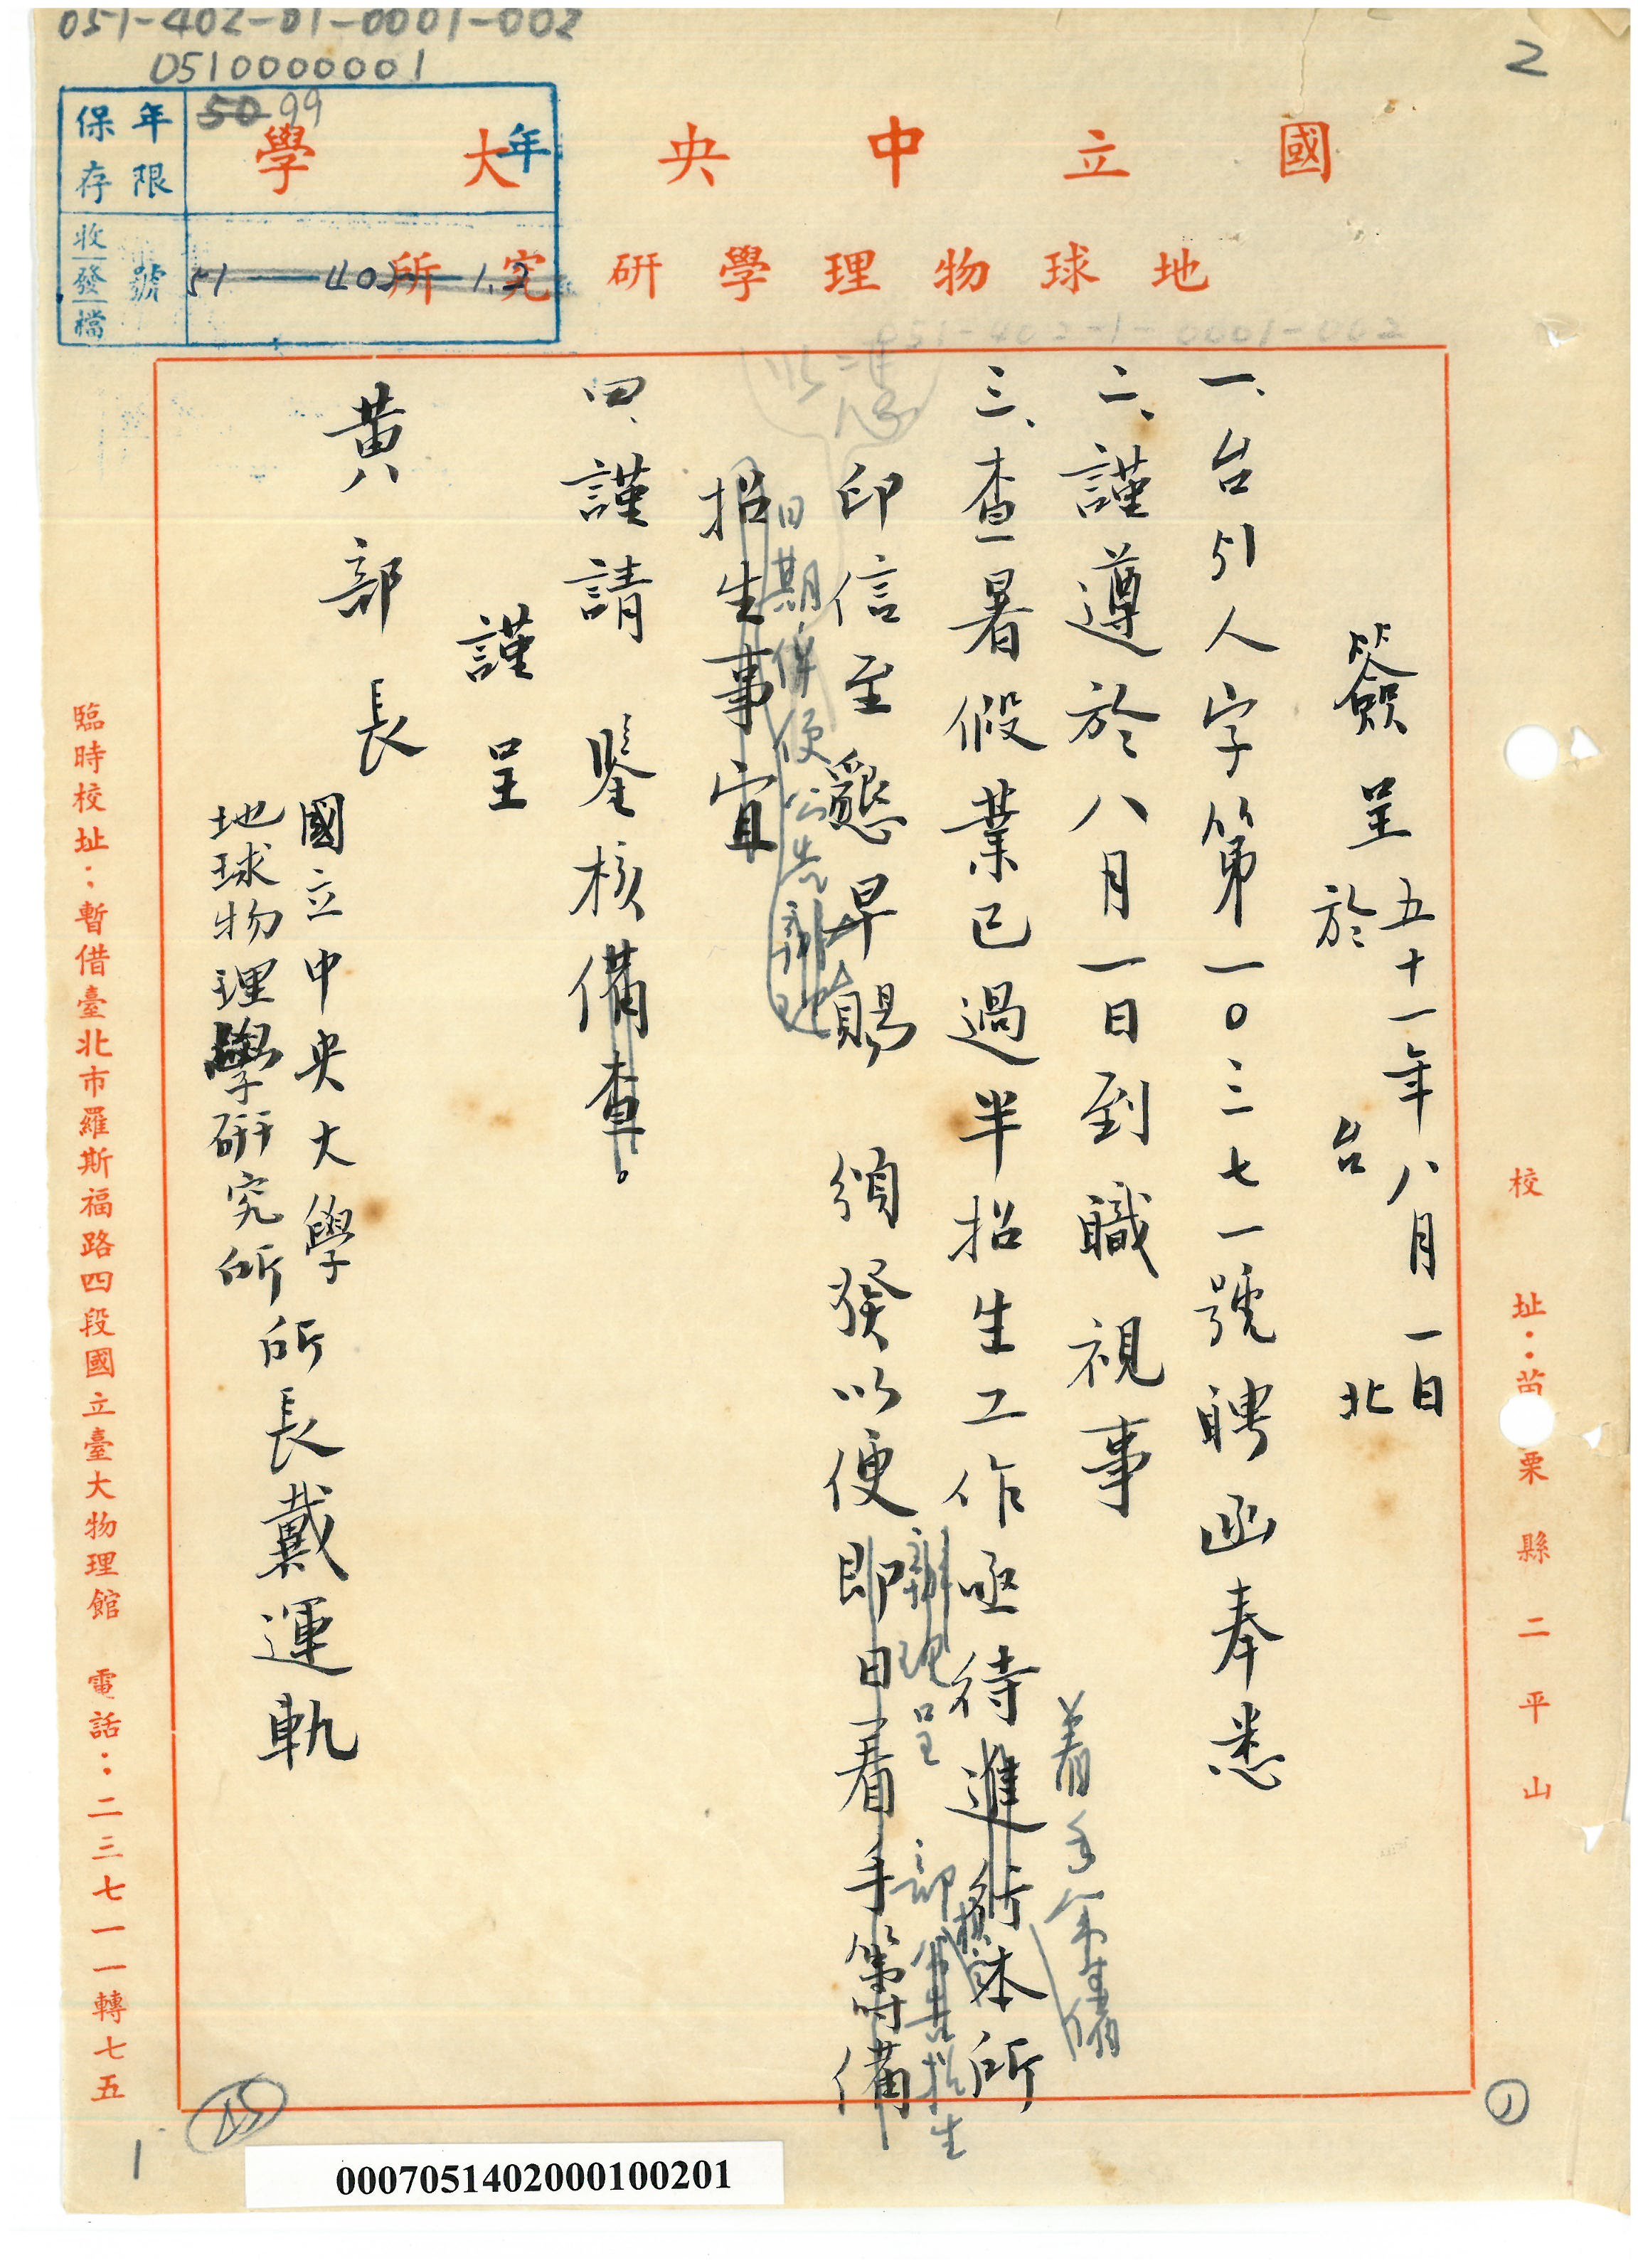 051-402-01-0001-002
0510000001
2
保存年限
50 99
年
收發檔號
51-402-1.2
國立中央大學
地球物理學研究所
051-402-1-0001-002
簽呈 五十一年八月一日
於台北
一、台引人字第一〇三七一號聘函奉悉
二、謹遵於八月一日到職視事
三、查暑假業已過半招生工作亟待進行本所
着手籌備
印信至懇早賜 頒發以便即日着手籌備
辦理呈 部 招生
招生事宜
日期俾便公告
四、謹請 鑒核備查。
謹呈
黃部長
國立中央大學
地球物理學研究所所長戴運軌
校址：苗栗縣二平山
臨時校址：暫借臺北市羅斯福路四段國立臺大物理館 電話：二三七一一轉七五
1
0007051402000100201